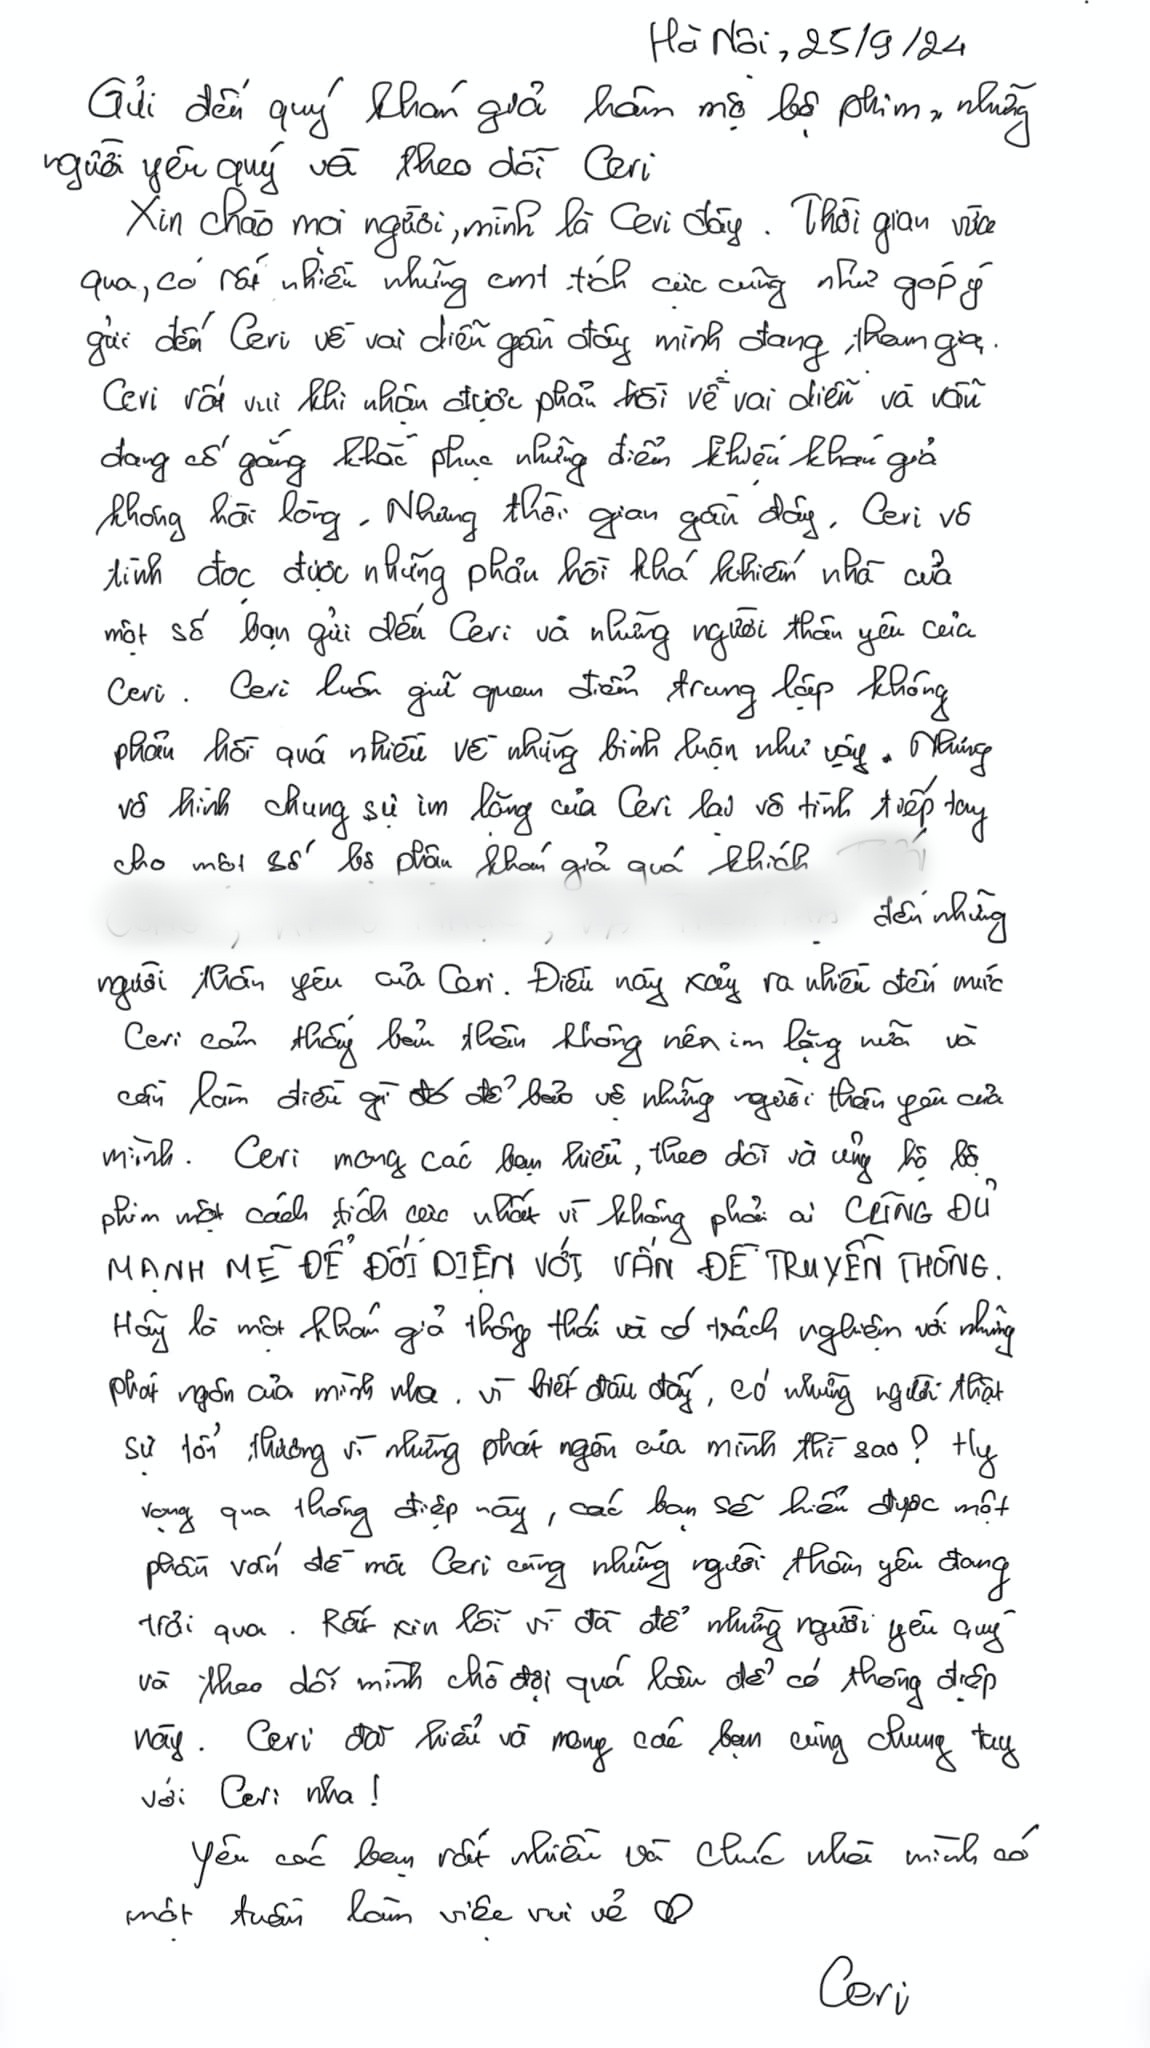 Hà Nội, 25/9/24
Gửi đến quý khán giả hâm mộ bộ phim, những
người yêu quý và theo dõi Ceri
Xin chào mọi người, mình là Ceri đây. Thời gian vừa
qua, có rất nhiều những cmt tích cực cũng như góp ý
gửi đến Ceri về vai diễn gần đây mình đang tham gia.
Ceri rất vui khi nhận được phản hồi về vai diễn và vẫn
đang cố gắng khắc phục những điểm khiến khán giả
không hài lòng. Nhưng thời gian gần đây, Ceri vô
tình đọc được những phản hồi khá khiếm nhã của
một số bạn gửi đến Ceri và những người thân yêu của
Ceri. Ceri luôn giữ quan điểm trung lập không
phản hồi quá nhiều về những bình luận như vậy. Nhưng
vô hình chung sự im lặng của Ceri lại vô tình tiếp tay
cho một số bộ phận khán giả quá khích
đến những
người thân yêu của Ceri. Điều này xảy ra nhiều đến mức
Ceri cảm thấy bản thân không nên im lặng nữa và
cần làm điều gì đó để bảo vệ những người thân yêu của
mình. Ceri mong các bạn hiểu, theo dõi và ủng hộ bộ
phim một cách tích cực nhất vì không phải ai CŨNG ĐỦ
MẠNH MẼ ĐỂ ĐỐI DIỆN VỚI VẤN ĐỀ TRUYỀN THÔNG.
Hãy là một khán giả thông thái và có trách nghiệm với những
phát ngôn của mình nha. vì biết đâu đấy, có những người thật
sự tổn thương vì những phát ngôn của mình thì sao? Hy
vọng qua thông điệp này, các bạn sẽ hiểu được một
phần vấn đề mà Ceri cùng những người thân yêu đang
trải qua. Rất xin lỗi vì đã để những người yêu quý
và theo dõi mình chờ đợi quá lâu để có thông điệp
này. Ceri đã hiểu và mong các bạn cùng chung tay
với Ceri nha!
Yêu các bạn rất nhiều và chúc nhà mình có
một tuần làm việc vui vẻ ♡
Ceri